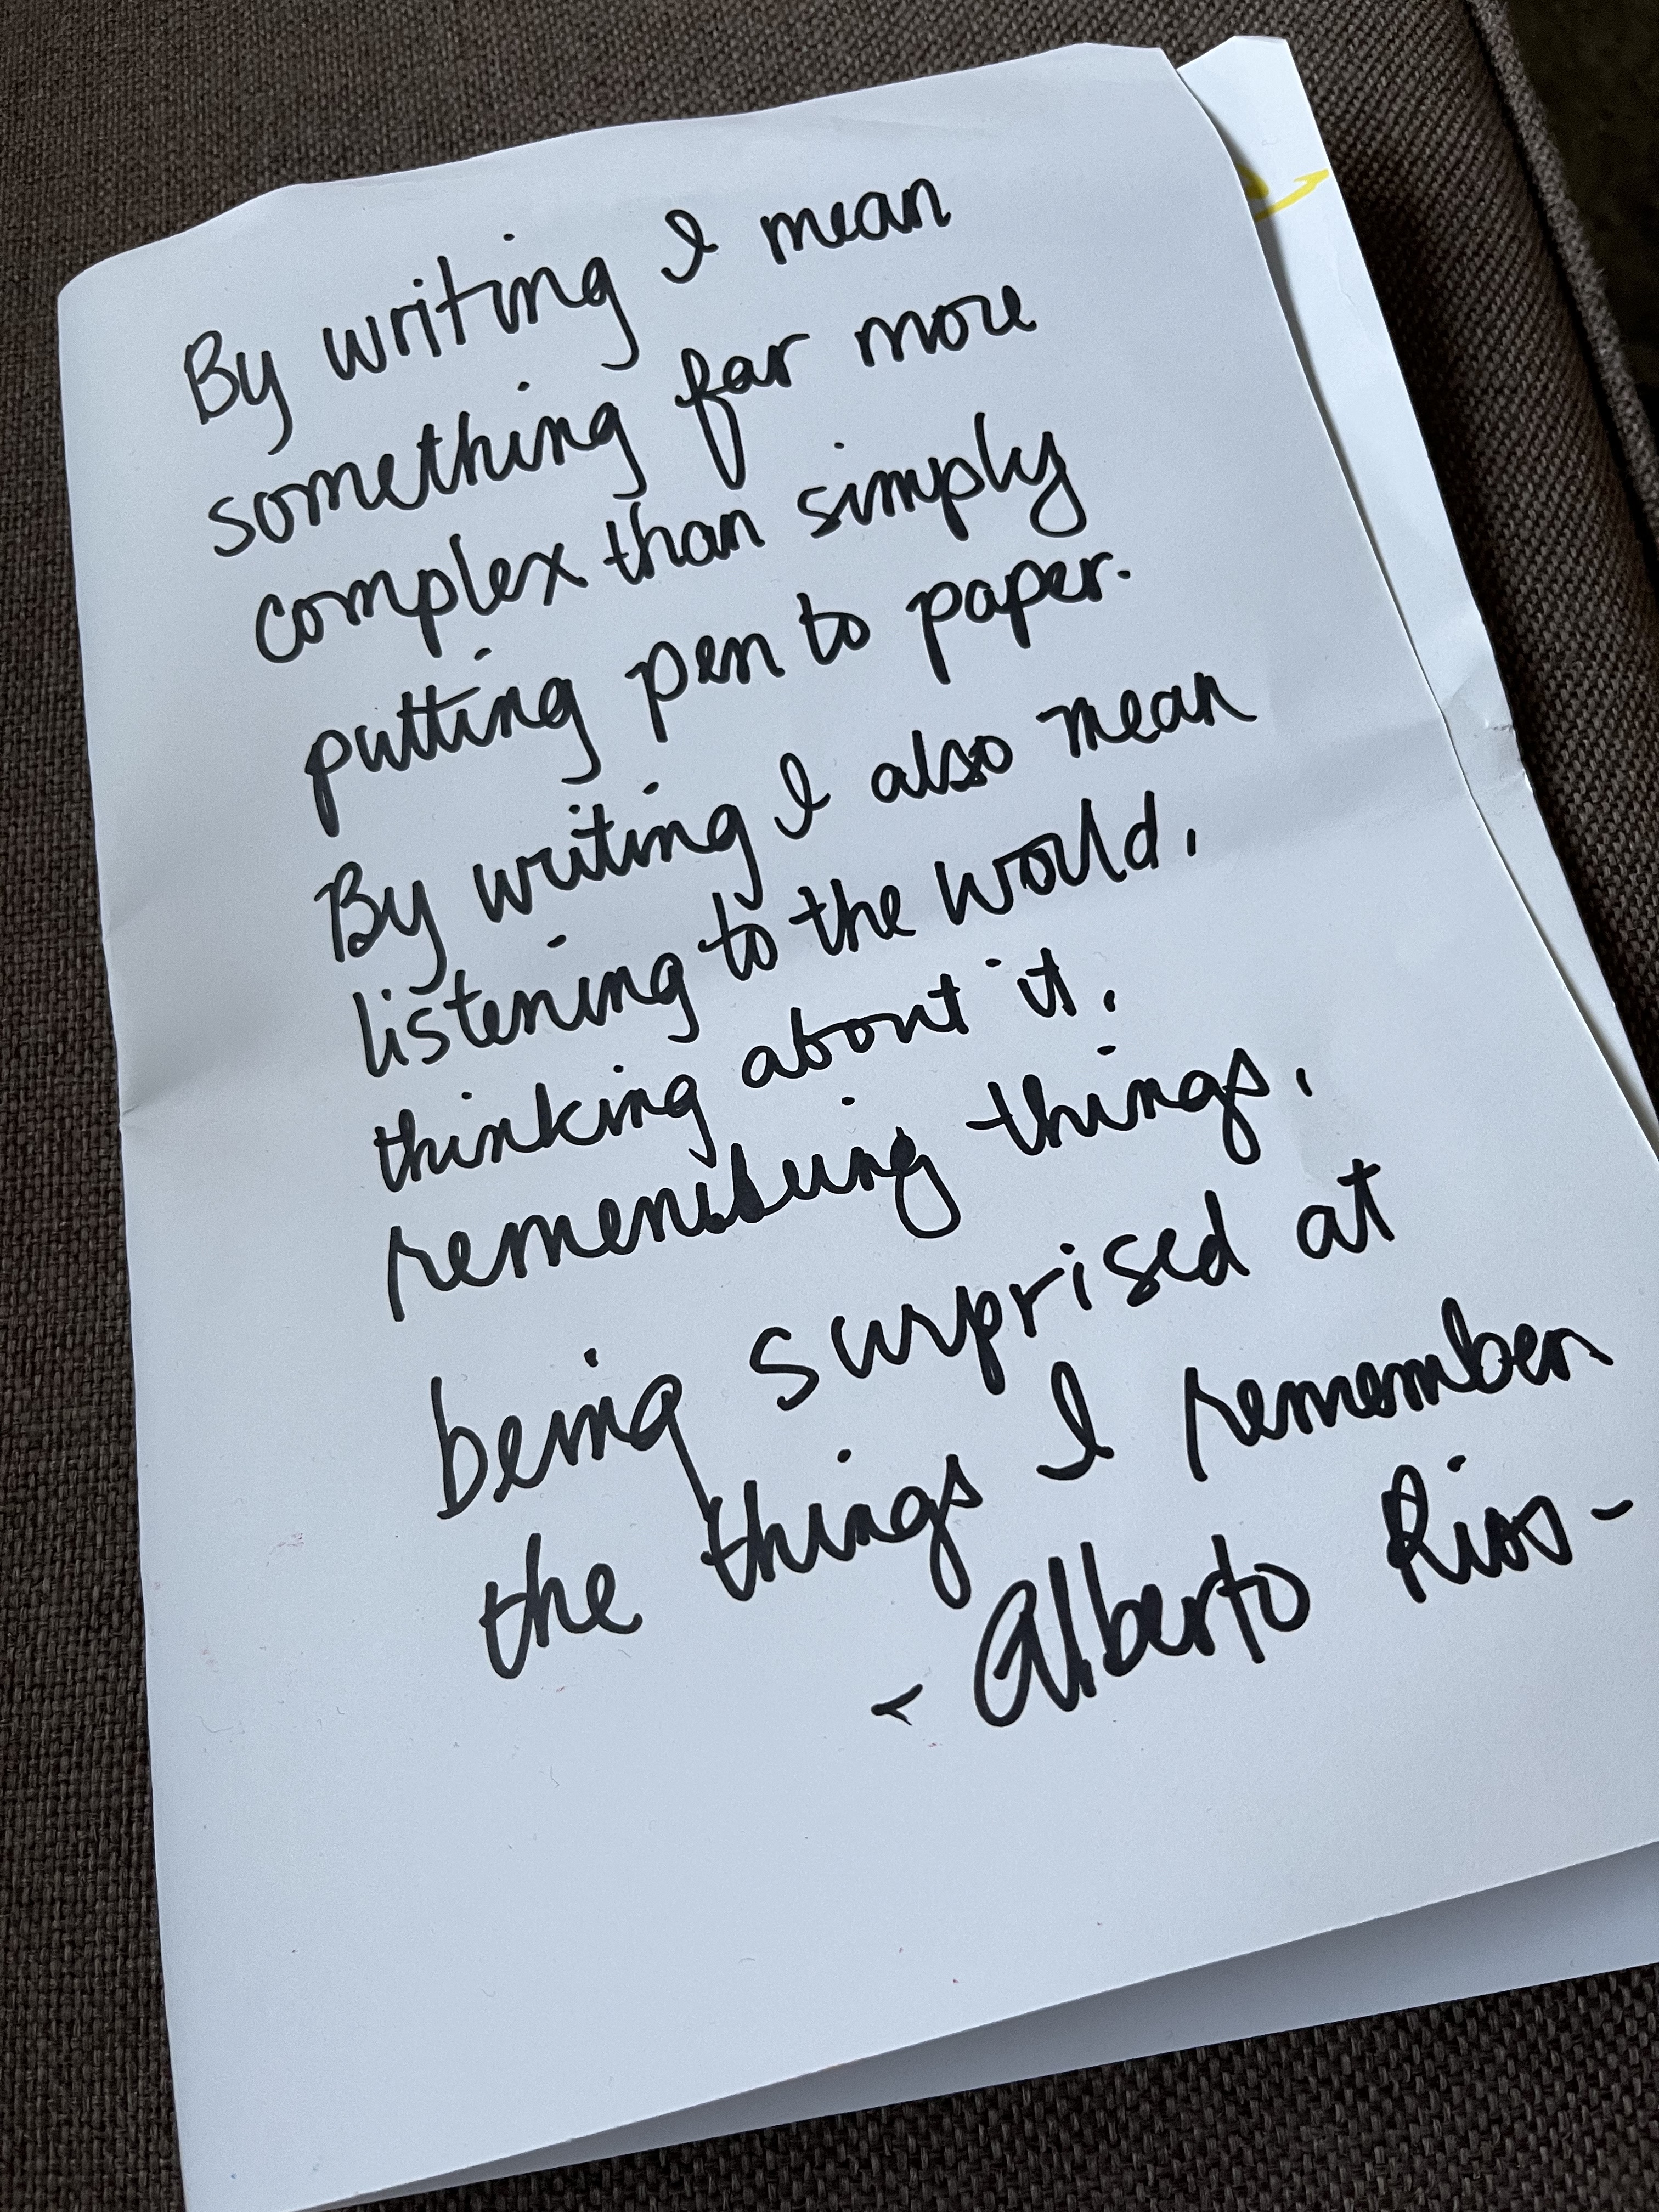 By writing I mean
something far more
complex than simply
putting pen to paper.
By writing I also mean
listening to the world,
thinking about it,
remembering things,
being surprised at
the things I remember
- Alberto Rios -